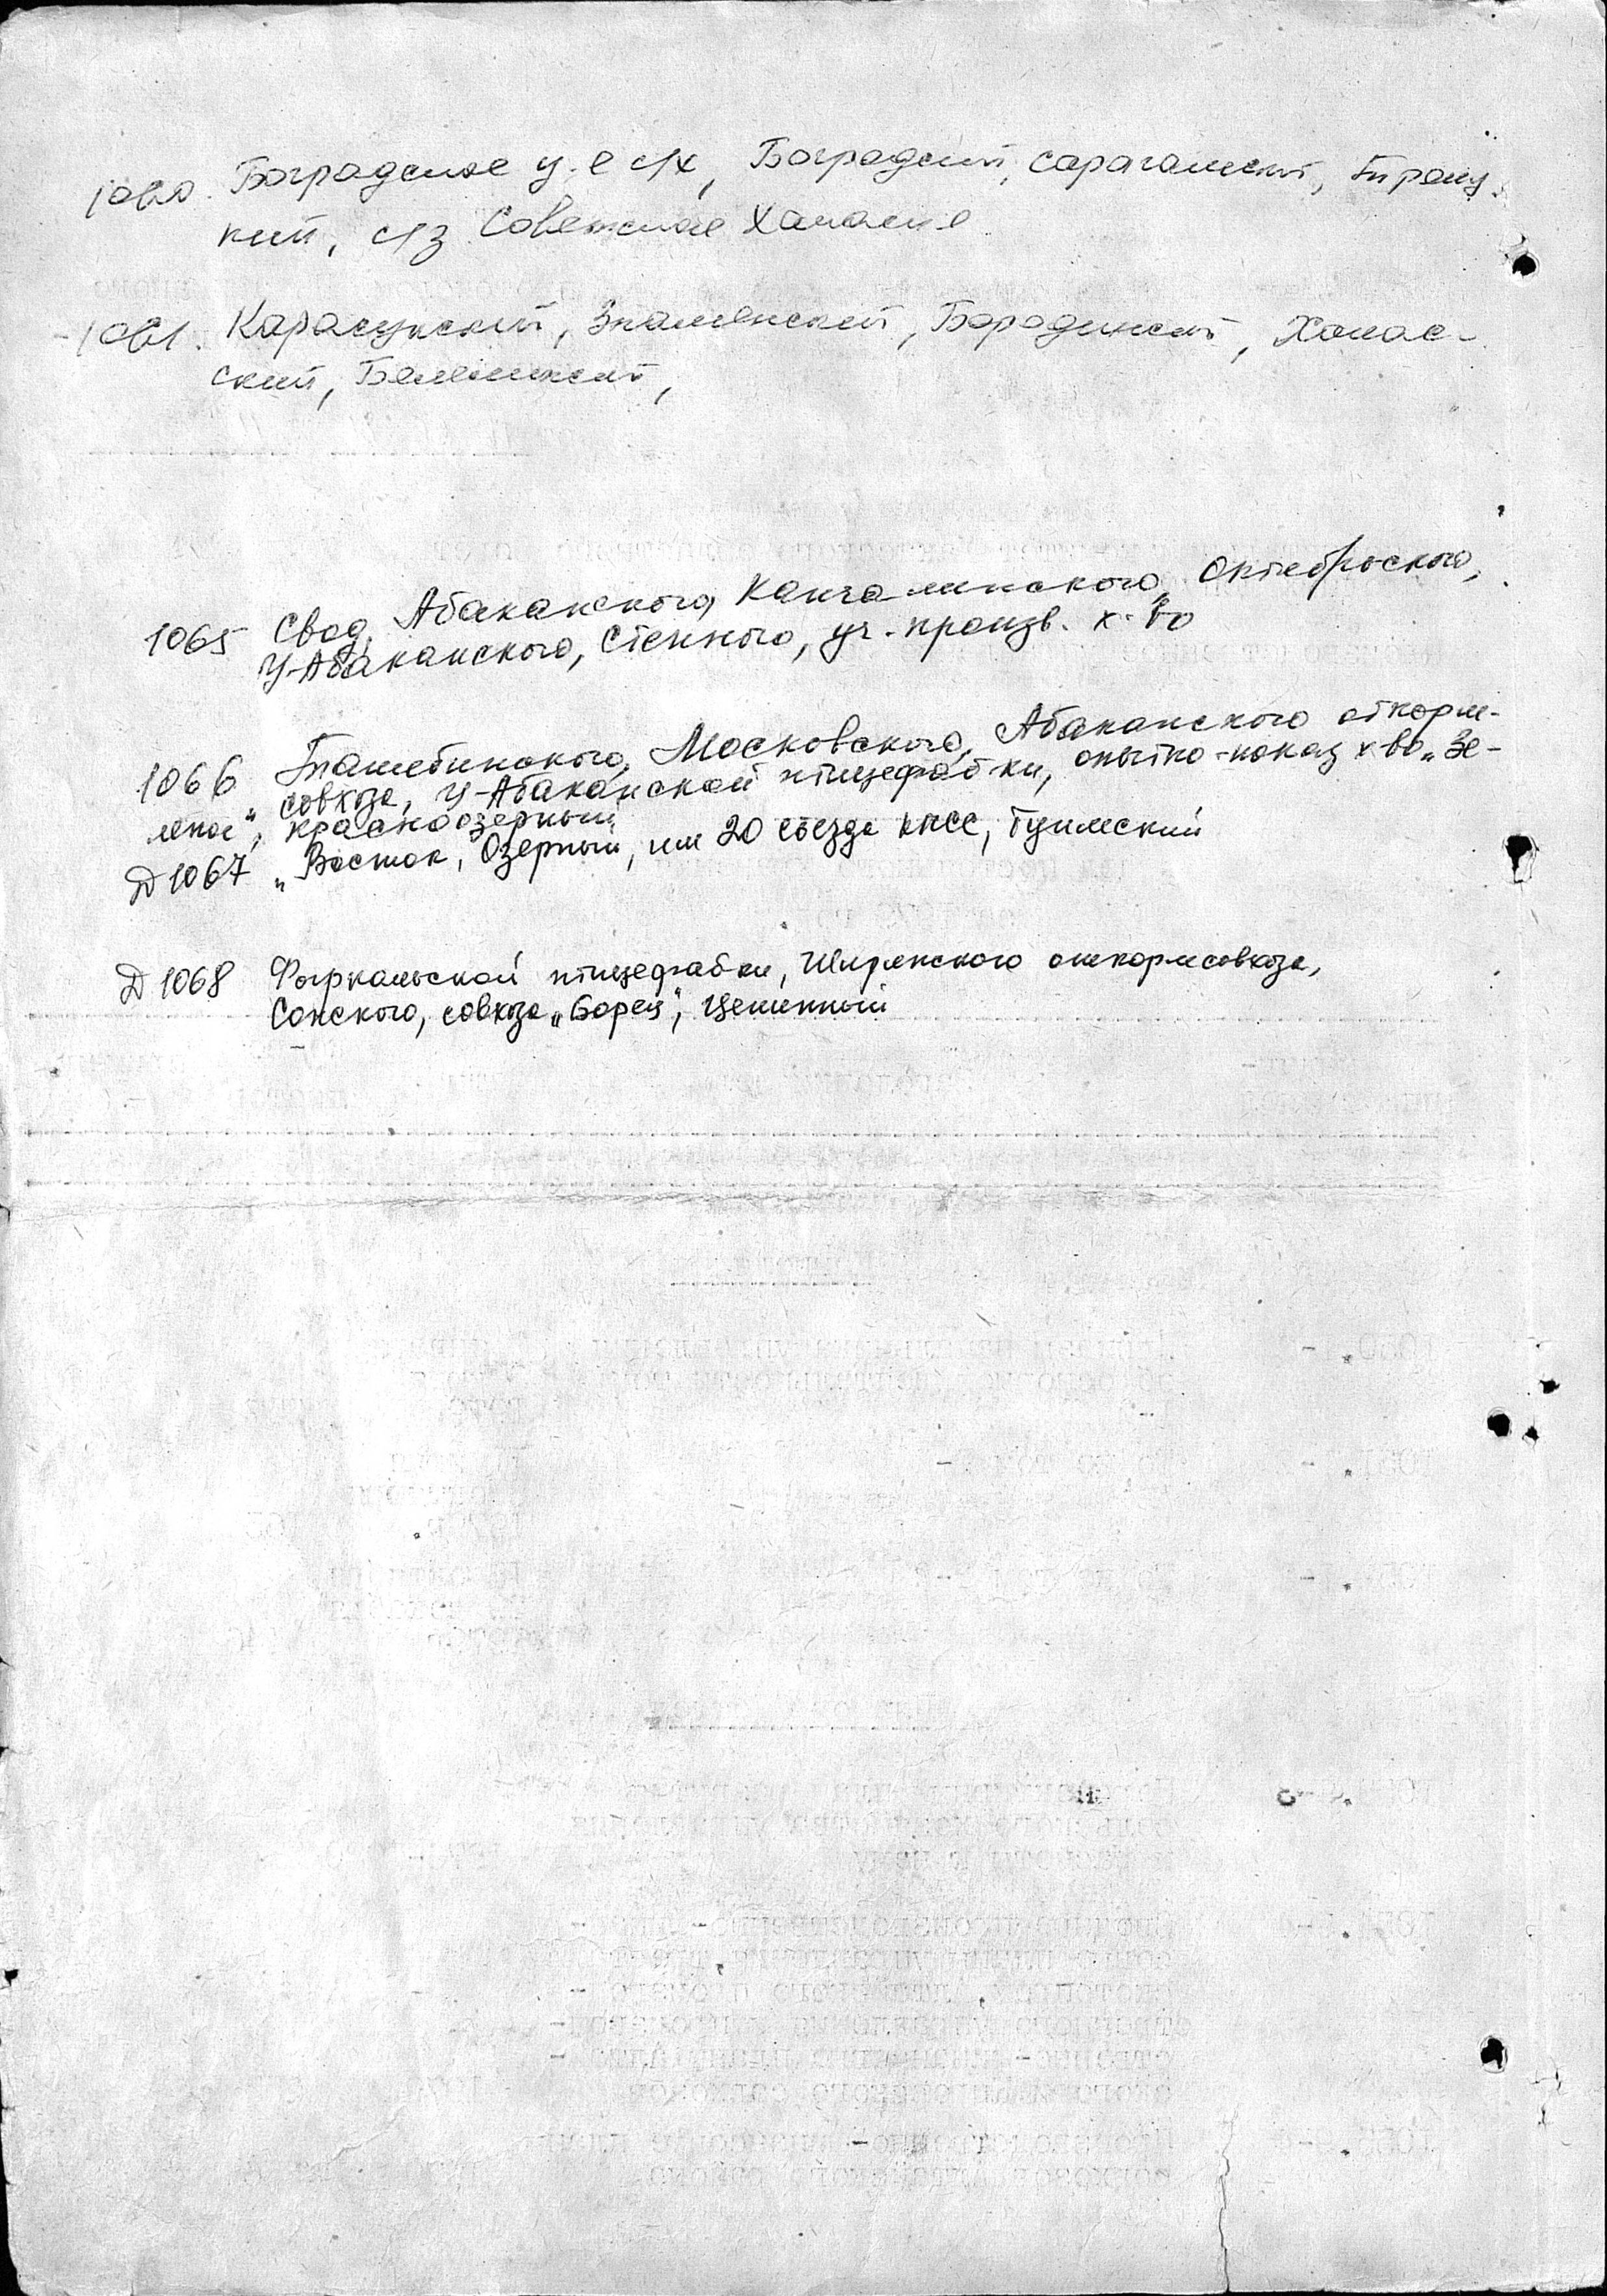 1060. Боградское у-е с/х, Боградский, Сарагашский, Троиц-
кий, с/з Советская Хакасия
1061. Карасукский, Знаменский, Бородинский, Хакас-
ский, Бейбулукский,
1065 Свод, Абаканского, Капчалинского, Октябрьского,
У-Абаканского, Степного, уч.-произв. х-во
1066 Ташебинского, Московского, Абаканского откорм-
совхоза, У-Абаканской птицефабрики, опытно-показ х-во „Зе-
леное", Красноозерный
Д 1067 „Восток, Озерный, им 20 съезда КПСС, Туимский
Д 1068 Фыркальской птицефабки, Ширинского откормсовхоза,
Сонского, совхоза „Борец", Целинный